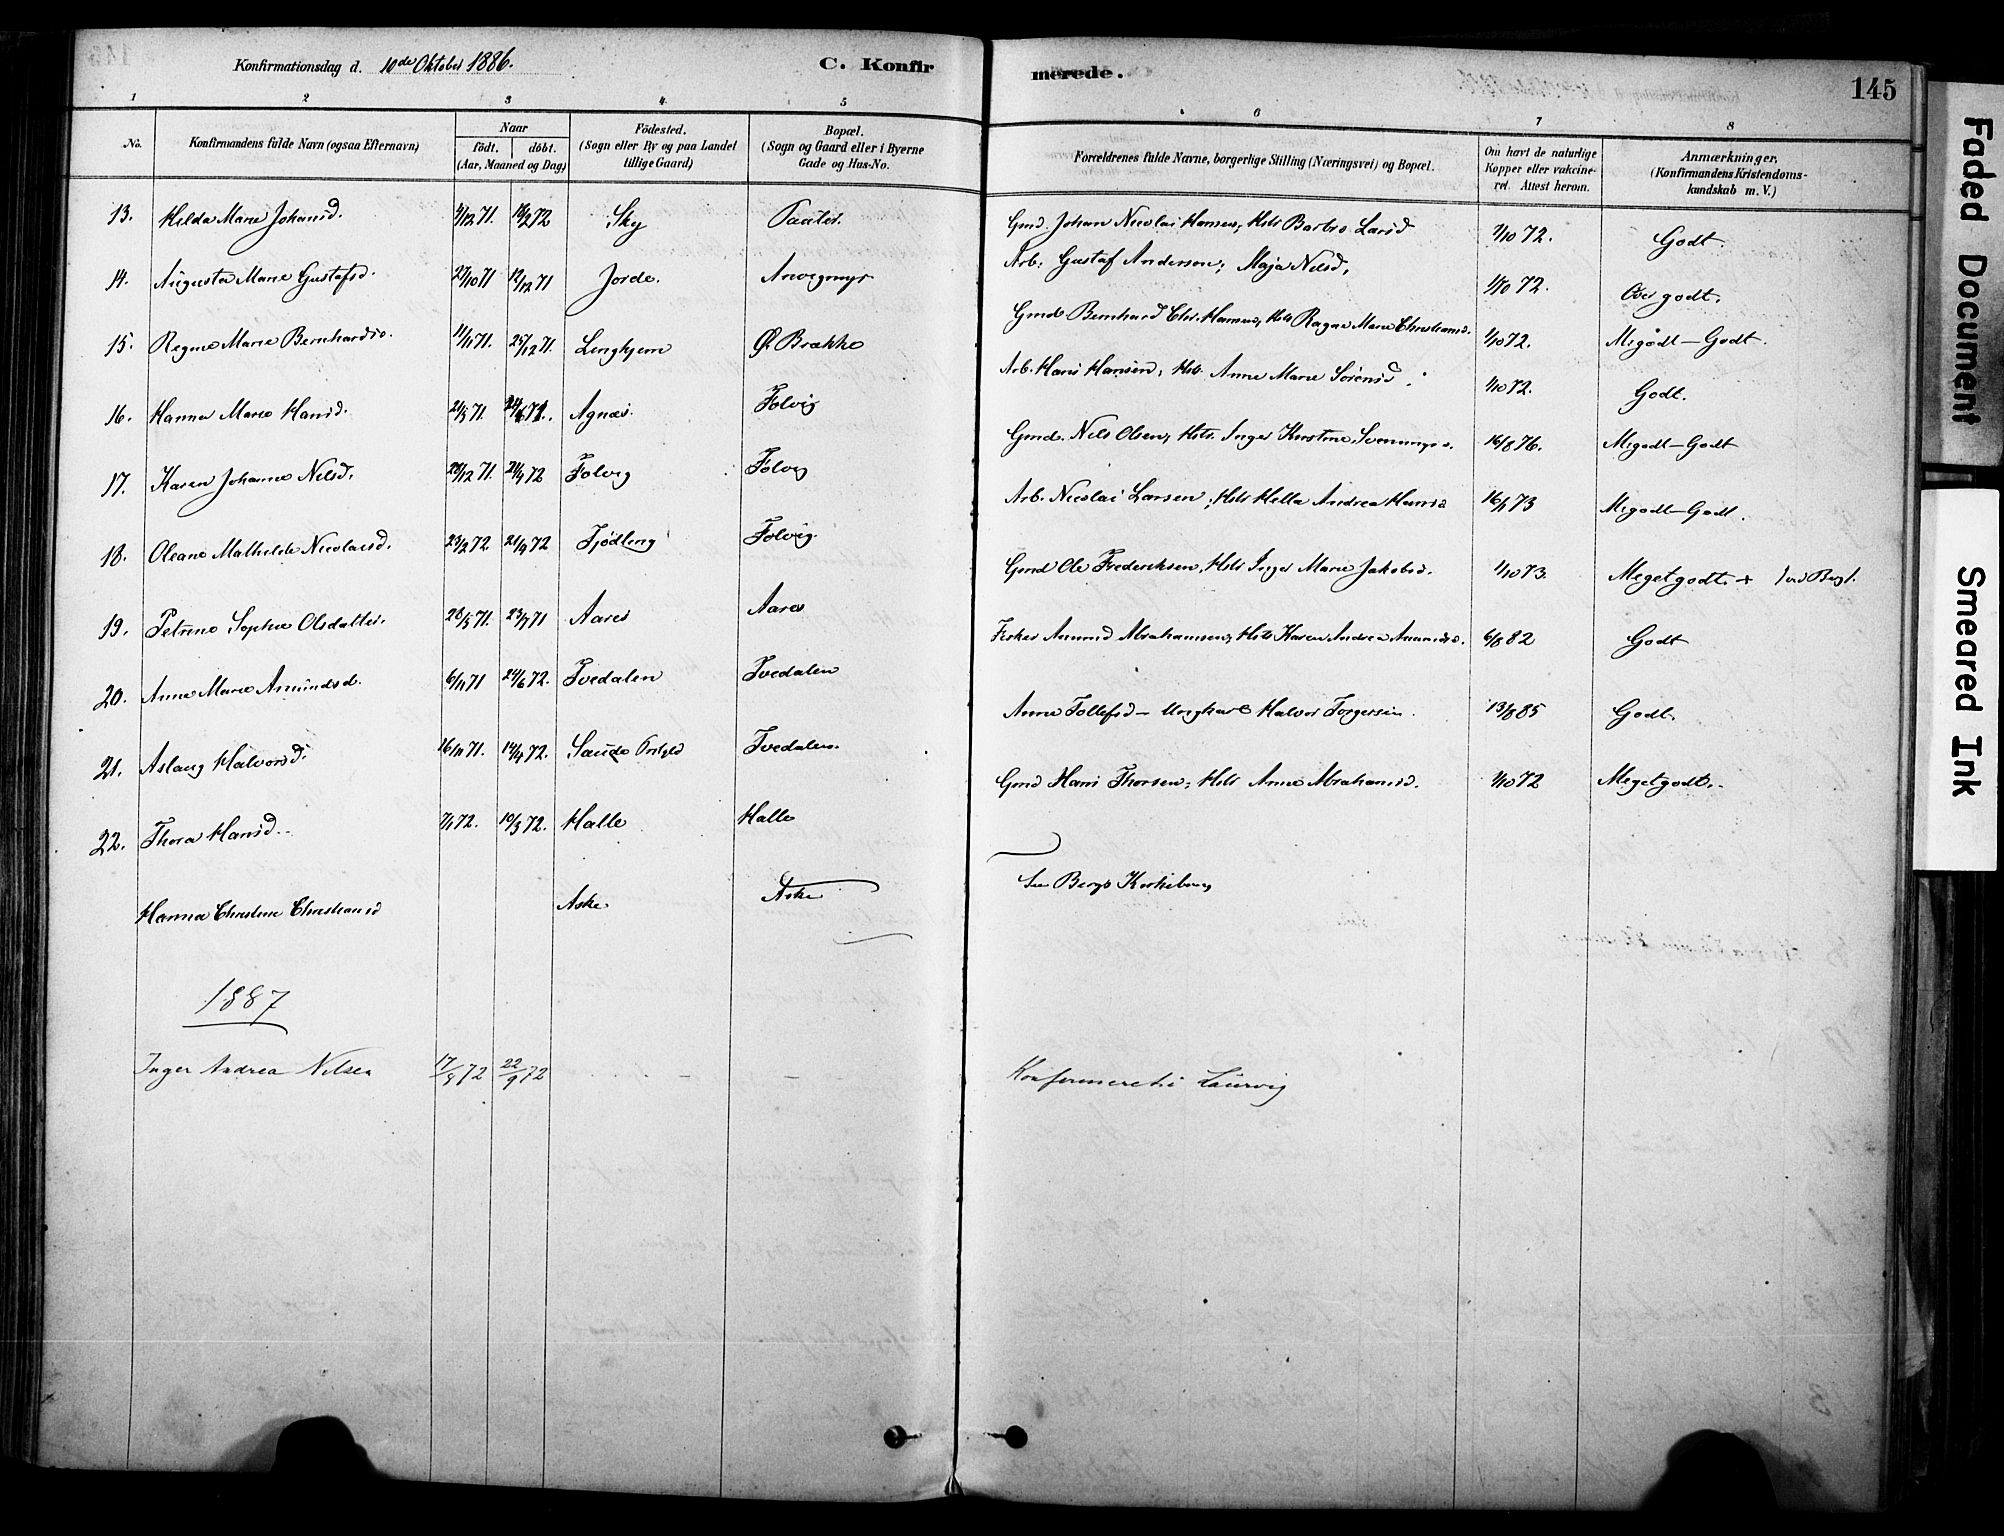 Konfirmationsdag d. 10de Oktober 1886. C. Konfirmerede. 145
1 2 3 4 5 6 7 8
No. Konfirmandens fulde Navn (ogsaa Efternavn) Naar födt. döbt. (Aar, Maaned og Dag) Födested. (Sogn eller By og paa Landet tillige Gaard) Bopæl. (Sogn og Gaard eller i Byerne Gade og Hus-No. Forældrenes fulde Navne, borgerlige Stilling (Næringsvei) og Bopæl. Om havt de naturlige Kopper eller vakcineret. Attest herom. Anmærkninger. (Konfirmandens Kristendomskundskab m. V.)
13. Helda Marie Johansd. 4/12 71. 18/2 72 Sky Gmd. Johan Nicolai Hansen, Hstr Barbro Larsd 1/10 72. Godt.
14. Augusta Marie Gustafsd. 23/10 71 12/12 71 Jorde. Anvigmyr Arb. Gustaf Anderson, Maja Nilsd, 1/10 72. Over godt.
15. Regine Marie Bernhardsd. 11/11 71. 25/12 71. Lengkjern Ø. Brække Gmd Bernhard Chr. Hansen, Hstr Ragne Marie Christiansd. 1/10 72. Mgodt-Godt.
16. Hanna Marie Hansd. 21/5 71. 24/6 71. Agnæs. Folvig Arb. Hans Hansen, Hstr. Anne Marie Sörensd. 1/10 72. Godt.
17. Karen Johanne Nilsd. 29/12 71. 21/9 72 Folvig Folvig Gmd. Nils Olsen, Hstr. Inger Kirstine Svennings. 16/8 76. Mgodt-Godt
18. Oleane Mathilde Nicolaisd. 23/2 72. 21/9 72 Tjødling Folvig. Arb. Nicolai Larsen, Hstr Hella Andrea Hansd 16/1 73 Mgodt-Godt.
19. Petrine Sophie Olsdatter. 20/5 71. 23/7 71 Aares Aares Gmd Ole Frederiksen, Hstr Inger Marie Jakobsd. 1/10 73. Meget godt. +
20. Anne Marie Amundsd. 6/11 71 24/6 72. Tvedalen Tvedalen Fisker Amund Abrahamsen, Hstr Karen Andrea Amundsd. 6/8 82 Godt
21. Aslaug Halvorsd. 16/11 71. 14/4 72. Saude Tvedalen. Anne Tollefsd - Ungkarl Halvor Torgersen. 13/8 85 Godt.
22. Thora Hansd. 7/1 72. 10/3 72. Halle Halle Gmd Hans Thorsen, Hstr Anne Abrahamsd. 1/10 72 Meget godt.
Hanna Christine Christiansd Aske Aske See Bergs Kirkebog
1887
Inger Andrea Nilsen 17/8 72 22/9 72 - - Konfirmeret i Laurvig
Faded Document
Smeared Ink